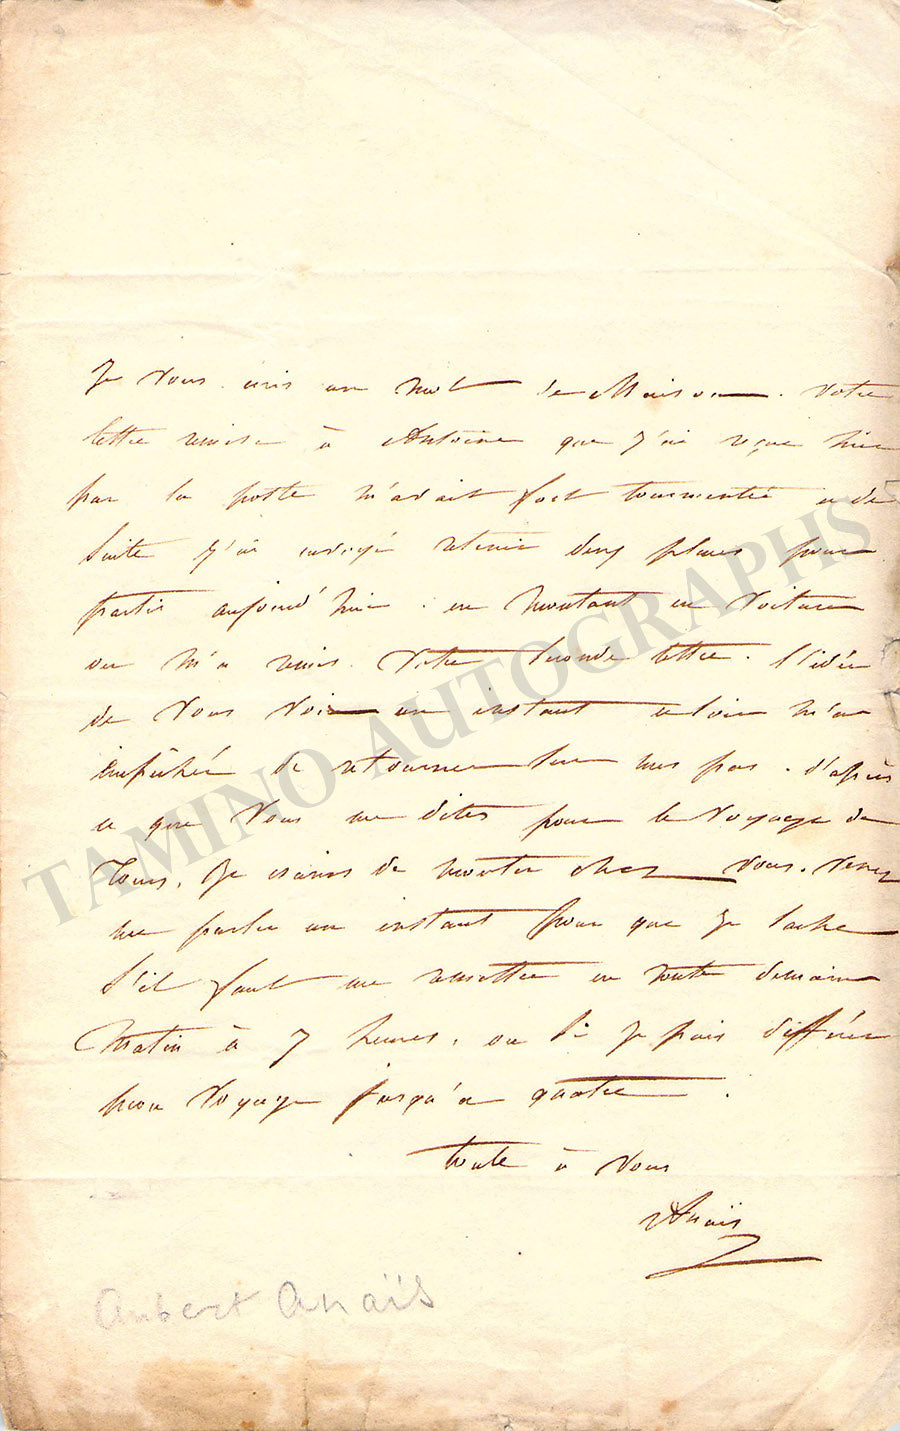 Je vous écris un mot de Maison. Votre
lettre remise à Antoine que j'ai reçue hier
par la poste m'avait fort tourmentée et de
suite j'ai envoyé retenir deux places pour
partir aujourd'hui. en montant en voiture
on m'a remis votre seconde lettre. l'idée
de vous voir un instant ce soir m'a
empêchée de retourner sur mes pas. d'après
ce que vous me dites pour le voyage de
Tours, je crains de monter chez vous. Venez
me parler un instant pour que je sache
s'il faut me remettre en route demain
matin à 7 heures, ou si je puis différer
mon voyage jusqu'à quatre.
toute à vous
Anaïs
Aubert Anaïs
TAMINO AUTOGRAPHS